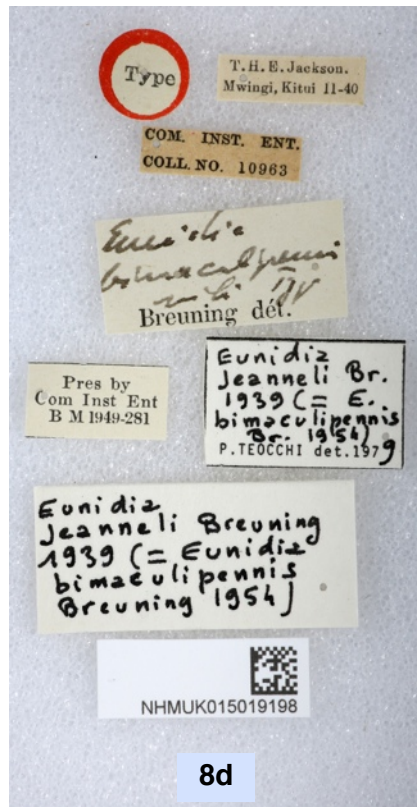 Type
T.H.E. Jackson.
Mwingi, Kitui 11-40
COM. INST. ENT.
COLL. NO. 10963
Eunidia
bimaculipenni
Breuning dét.
Pres by
Com Inst Ent
B M 1949-281
Eunidia
Jeanneli Br.
1939 (= E.
bimaculipennis
Br. 1954)
P.TEOCCHI det.1979
Eunidia
Jeanneli Breuning
1939 (= Eunidia
bimaculipennis
Breuning 1954)
NHMUK015019198
8d